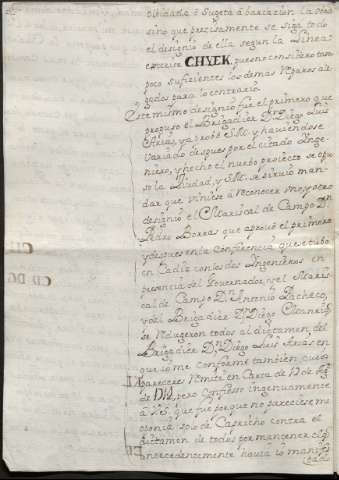 olvidarla ó Sugeta á bariacion la obra
sino que precisamente se siga todo
el designio de ella segun la Linea
exterior CHYEK, pues no considero tam
poco suficientes los demas reparos ale
gados para lo contrario.
Este mismo designio fue el primero que
propuso el Brigadier Dn. Diego Luis
Arias, y aprobó S.M. y haviendose
Variado despues por el citado Inge
niero, y hecho el nuebo proiecto se opu
so la Ciudad, y S.M. se sirvió man
dar que viniese á reconocer uno y otro
designio el Mariscal de Campo Dn.
Pedro Borras que aprovó el primero
y despues en la Conferencia que se tubo
en Cadiz con los dos Ingenieros en
presencia del Governador, y el Maris
cal de Campo Dn. Antonio Pacheco,
y del Brigadier Dn. Diego
se redugeron todos al dictamen del
Brigadier Dn. Diego Luis Arias en
que io me conformé tambien, cuios
pareceres remiti en Carta de
de pero Confieso ingenuamente
á V.E. que fue porque no pareciese me
oponia solo de Capricho contra el
dictamen de todos por mantener el q.
antecedentemente havia io manifes
tado